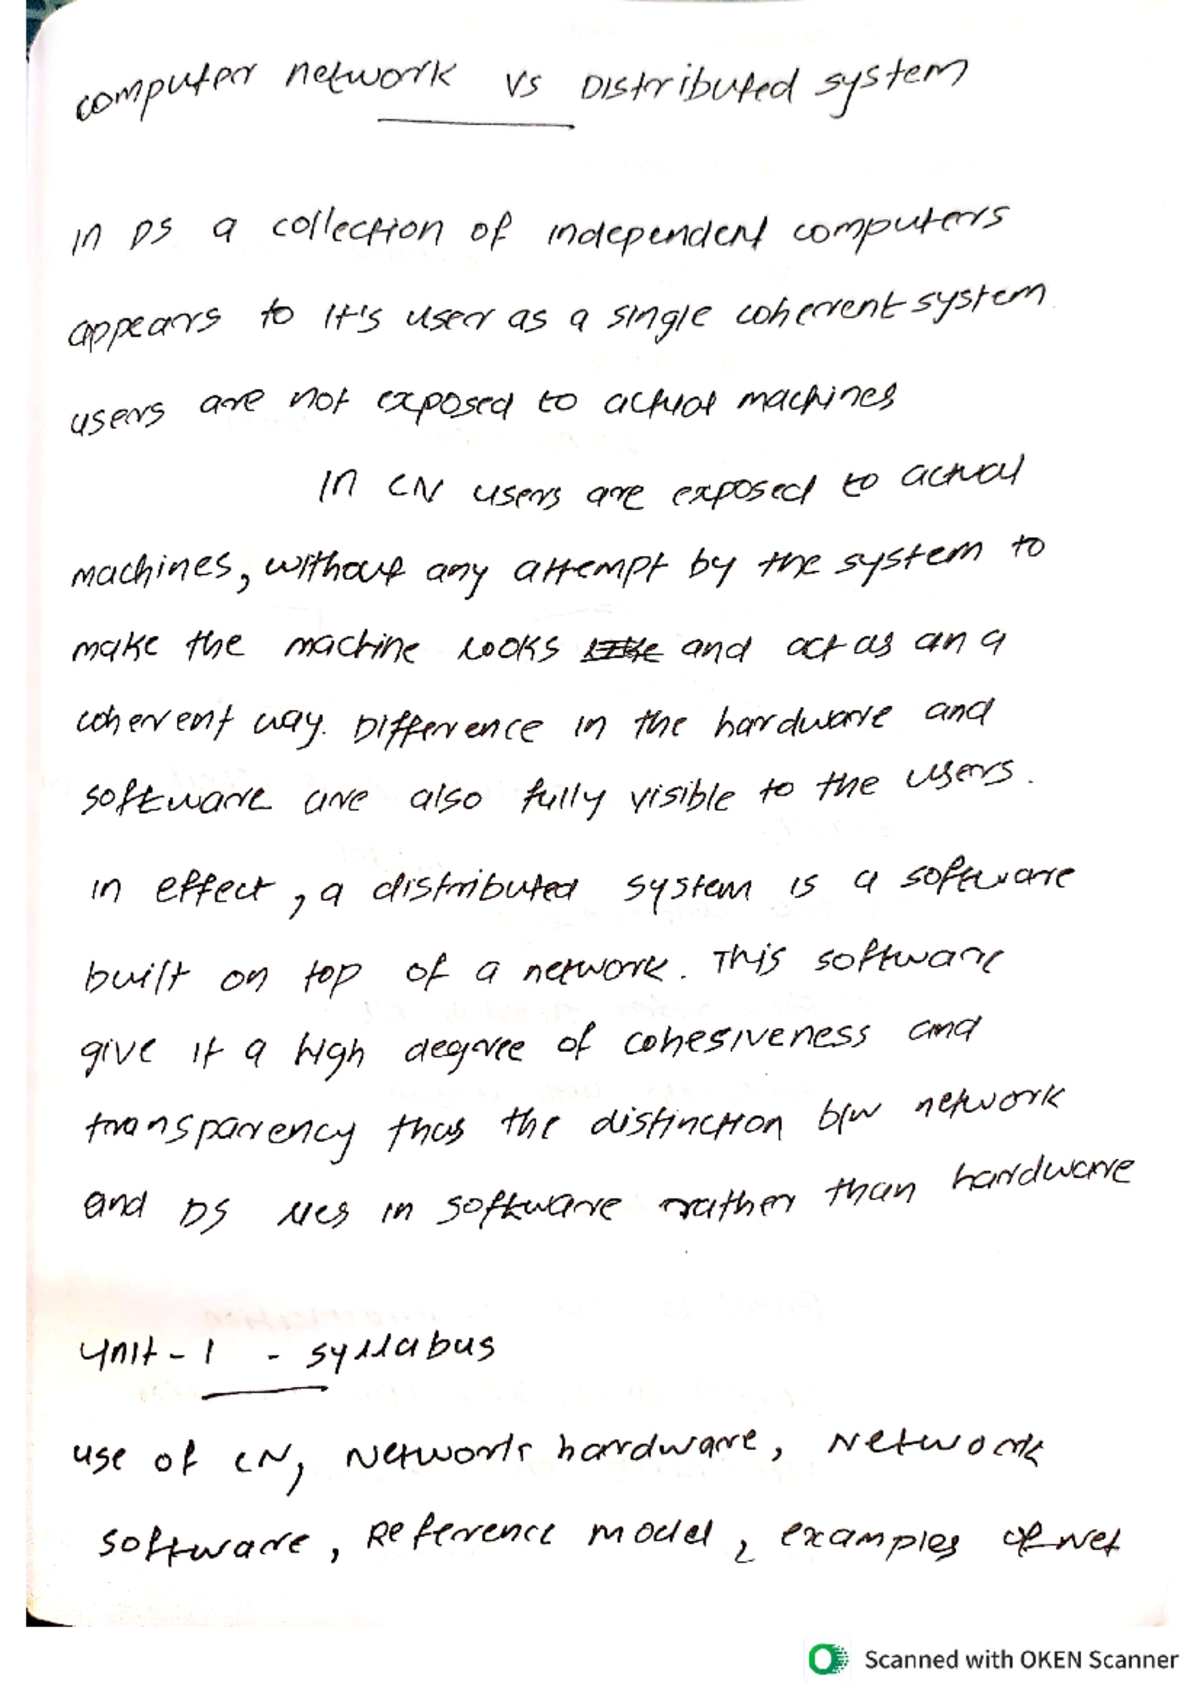 computer network vs Distributed system
in DS a collection of independent computers
appears to it's user as a single coherent system
users are not exposed to actual machines
In CN users are exposed to actual
machines, without any attempt by the system to
make the machine looks like and act as an a
coherent way. Difference in the hardware and
software are also fully visible to the users.
in effect, a distributed system is a software
built on top of a network. This software
give it a high degree of cohesiveness and
transparency thus the distinction b/w network
and DS lies in software rather than hardware
Unit-1 - syllabus
use of CN, Network hardware, Network
software, Reference model, examples of net
Scanned with OKEN Scanner